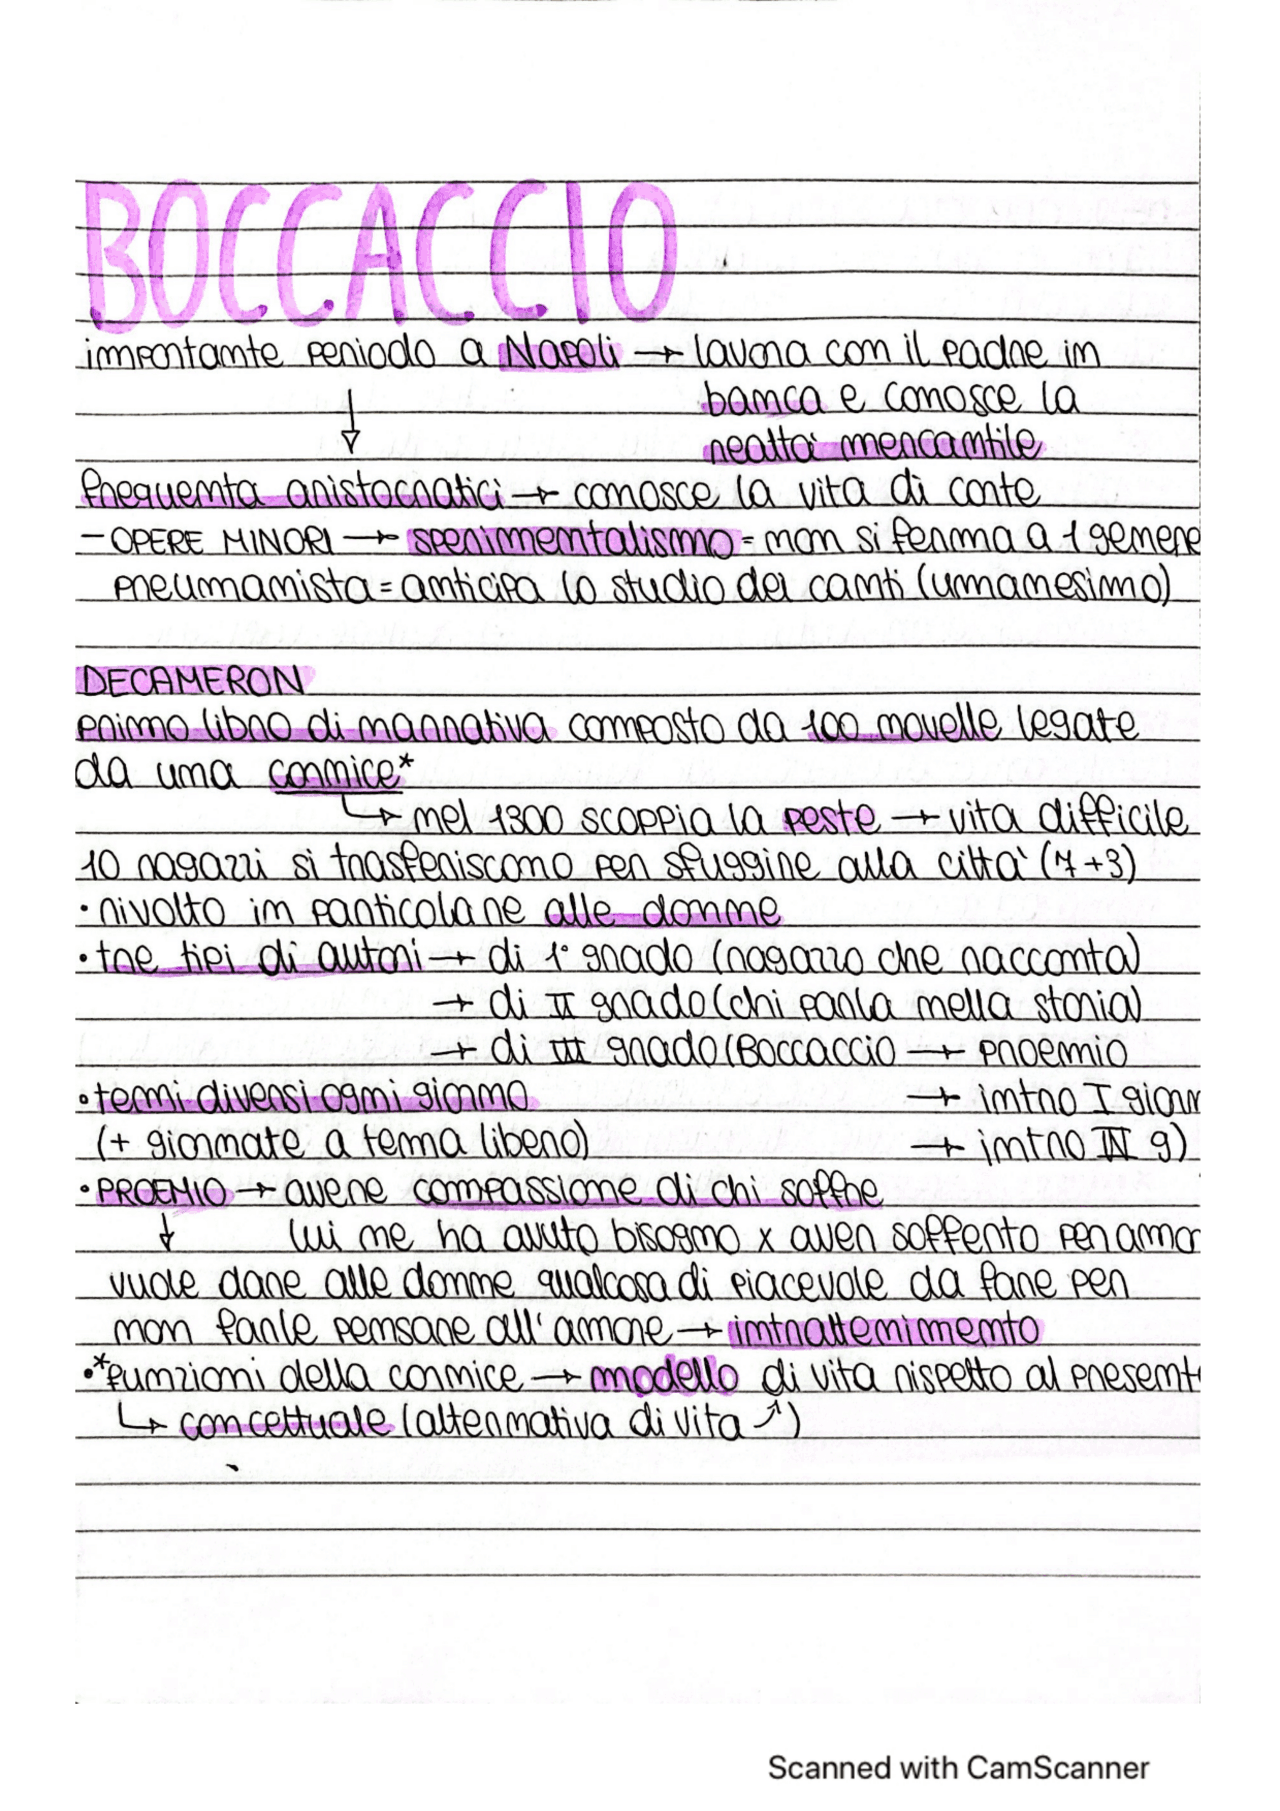 BOCCACCIO
importante periodo a Napoli → lavora con il padre in
banca e conosce la
↓
realtà mercantile
frequenta aristocratici → conosce la vita di corte
- OPERE MINORI → sperimentalismo = non si ferma a 1 genere
preumanista = anticipa lo studio dei canti (umanesimo)
DECAMERON
primo libro di narrativa composto da 100 novelle legate
da una cornice*
↳ nel 1300 scoppia la peste → vita difficile
10 ragazzi si trasferiscono per sfuggire alla città (7+3)
• rivolto in particolare alle donne
• tre tipi di autori → di 1° grado (ragazzo che racconta)
→ di II grado (chi parla nella storia)
→ di III grado (Boccaccio → proemio
• temi diversi ogni giorno → intro I giorn
(+ giornate a tema libero) → intro IV g)
• PROEMIO → avere compassione di chi soffre
↓ lui ne ha avuto bisogno x aver sofferto per amo
vuole dare alle donne qualcosa di piacevole da fare per
non farle pensare all'amore → intrattenimento
•*funzioni della cornice → modello di vita rispetto al present
↳ concettuale (alternativa di vita ↗)
Scanned with CamScanner